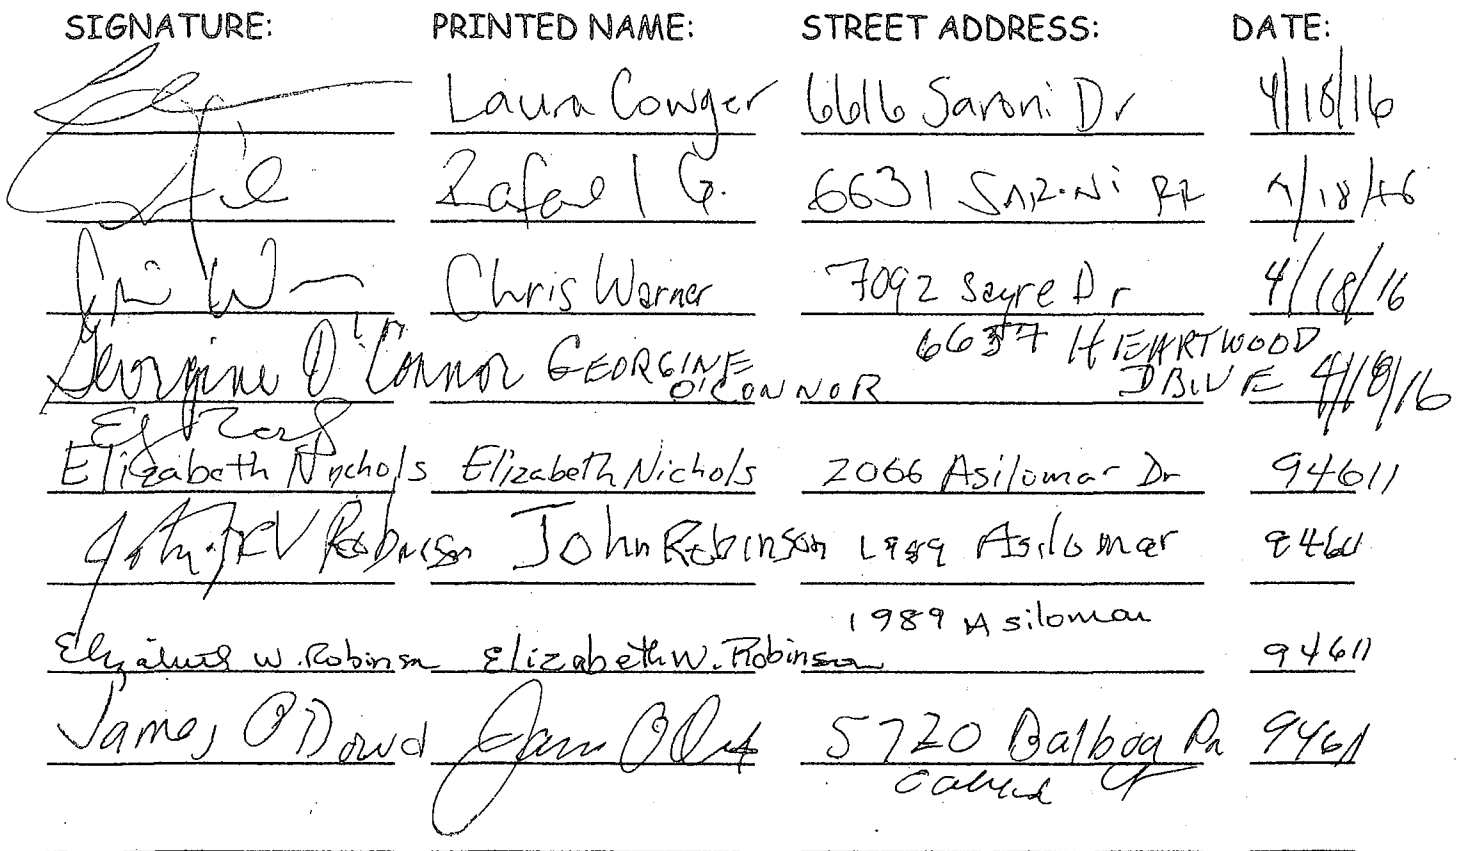 SIGNATURE: PRINTED NAME: STREET ADDRESS: DATE:
Laura Cowger 6616 Saroni Dr 4/18/16
Rafael G. 6631 SARONi 4/18/16
Chris Warner 7092 Sayre Dr 4/18/16
Georgine O'Connor GEORGINE O'CONNOR 6637 HEARTWOOD DRIVE 4/18/16
Elizabeth Nichols Elizabeth Nichols 2066 Asilomar Dr 94611
Robinson John Robinson 1989 Asilomar 94611
Elizabeth W. Robinson Elizabeth W. Robinson 1989 Asilomar 94611
James O'Dowd 5720 Balboa 94611